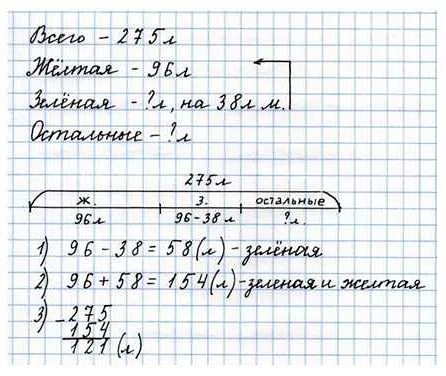 Всего - 275 л
Жёлтая - 96 л
Зелёная - ? л, на 38 л м.
Остальные - ? л
275 л
ж. з. остальные
96 л 96-38 л ? л.
1) 96 - 38 = 58 (л) - зелёная
2) 96 + 58 = 154 (л) - зеленая и желтая
3) - 275
154
121 (л)